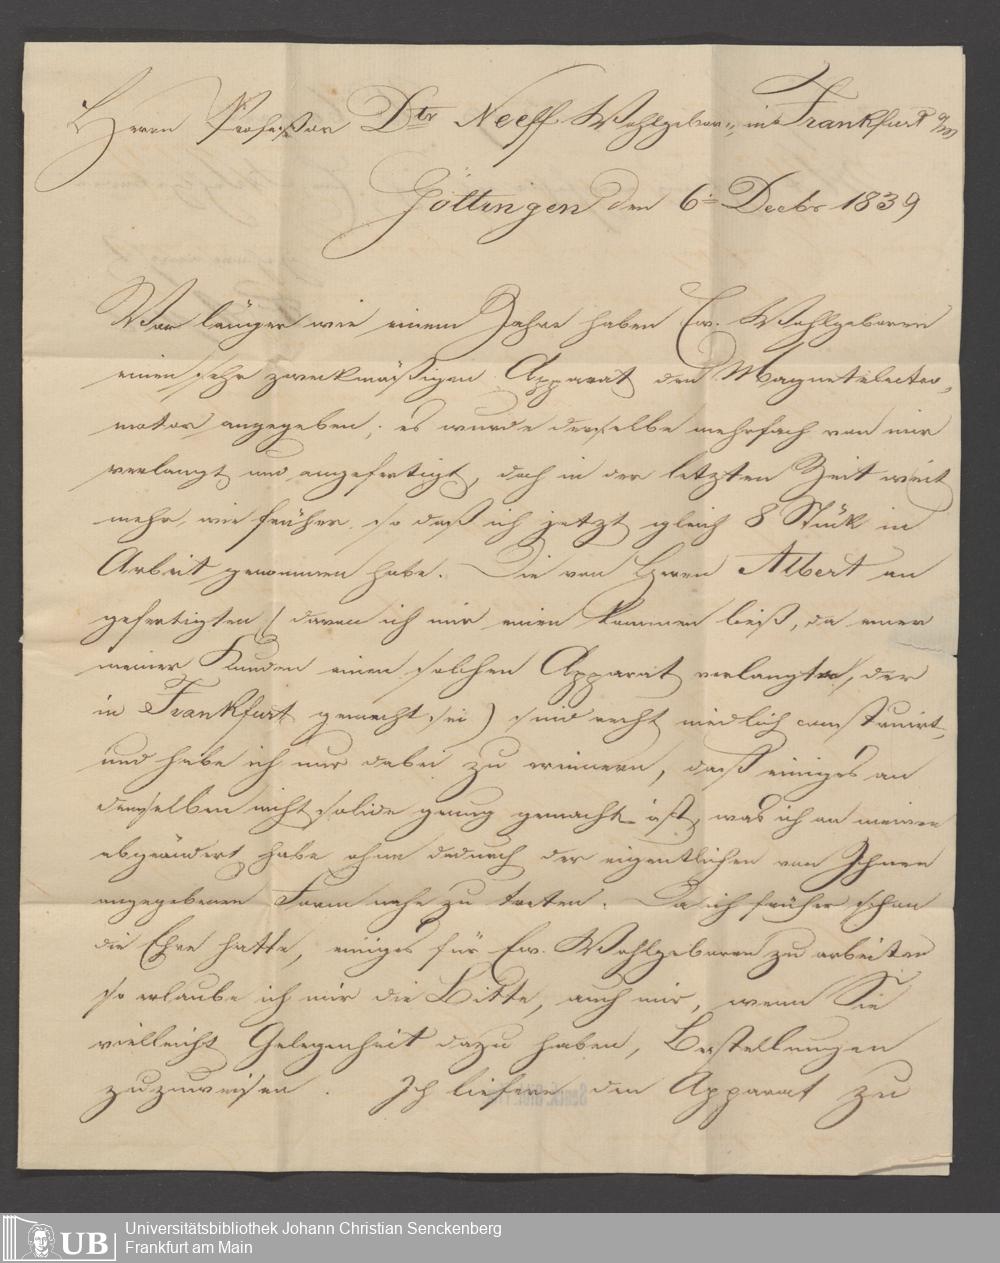 Herrn Professor Dtr Neeff Wohlgeboren in Frankfurt a/m
Göttingen den 6t Decbr 1839
Vor länger wie einem Jahre haben Ew. Wohlgeboren
einen sehr zweckmäßigen Apparat den Magnetelectro-
motor angegeben; es wurde derselbe mehrfach von mir
verlangt und angefertigt, doch in der letzten Zeit weit
mehr, wie früher, so daß ich jetzt gleich 8 Stück in
Arbeit genommen habe. Die von Herrn Albert an
gefertigten (davon ich mir einen kommen ließ, da einer
meiner Kunden einen solchen Apparat verlangte, der
in Frankfurt gemacht sei) sind recht niedlich construirt,
und habe ich nur dabei zu erinnern, daß einiges an
denselben nicht solide genug gemacht ist, was ich an meinen
abgeändert habe ohne dadurch der eigentlichen von Ihnen
angegebenen Form nahe zu treten. Da ich früher schon
die Ehre hatte, einiges für Ew. Wohlgeboren zu arbeiten
so erlaube ich mir die Bitte, auch mir, wenn Sie
vielleicht Gelegenheit dazu haben, Bestellungen
zuzuweisen. Ich liefere den Apparat zu
UB
Universitätsbibliothek Johann Christian Senckenberg
Frankfurt am Main